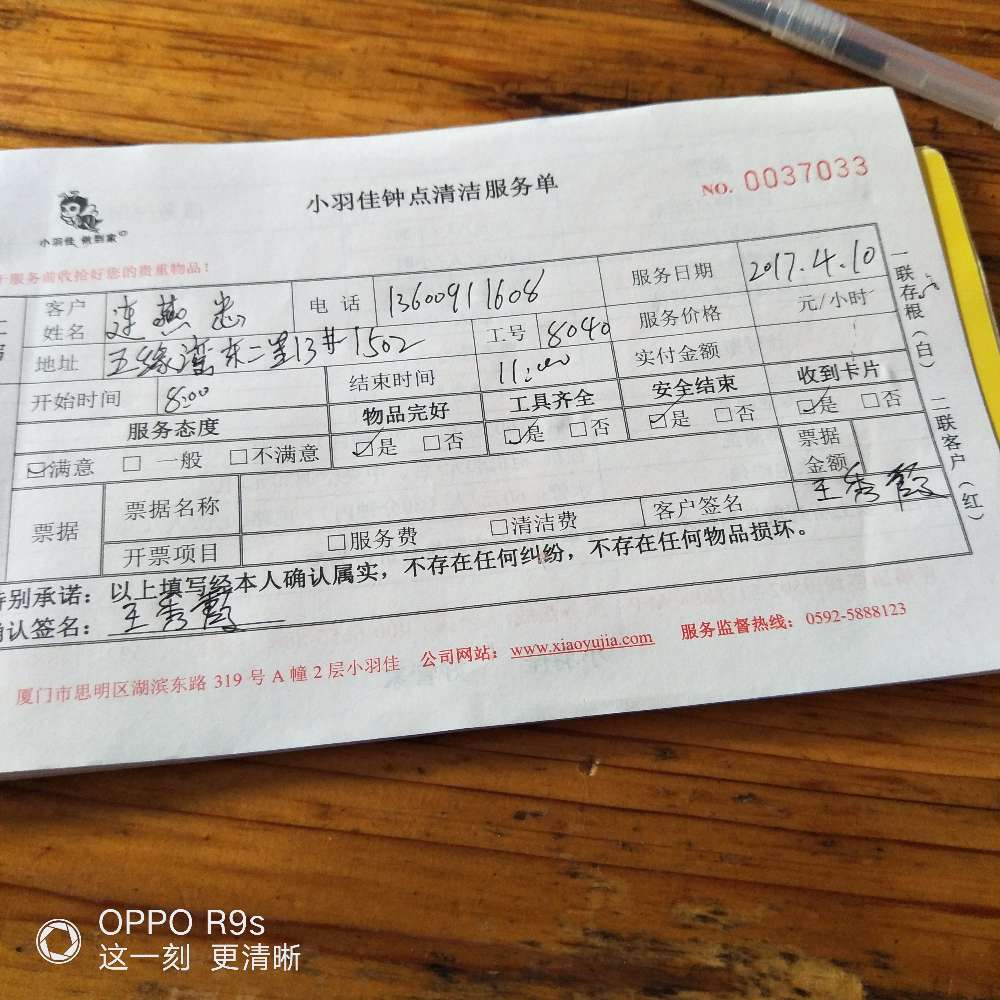 小羽佳钟点清洁服务单
NO. 0037033
小羽佳 做到家
于服务前收拾好您的贵重物品！
客户姓名 连燕忠 电话 13600911608 服务日期 2017.4.10
地址 五缘湾东二里13#1502 工号 8040 服务价格 元/小时
开始时间 8:00 结束时间 11:00 实付金额
服务态度 物品完好 工具齐全 安全结束 收到卡片
☑满意 □一般 □不满意 ☑是 □否 ☑是 □否 ☑是 □否 ☑是 □否
票据 票据名称 票据金额
开票项目 □服务费 □清洁费 客户签名 王秀霞
特别承诺：以上填写经本人确认属实，不存在任何纠纷，不存在任何物品损坏。
确认签名：王秀霞
厦门市思明区湖滨东路 319 号 A 幢 2 层小羽佳 公司网站：www.xiaoyujia.com 服务监督热线：0592-5888123
一联存根（白）
二联客户（红）
OPPO R9s
这一刻 更清晰